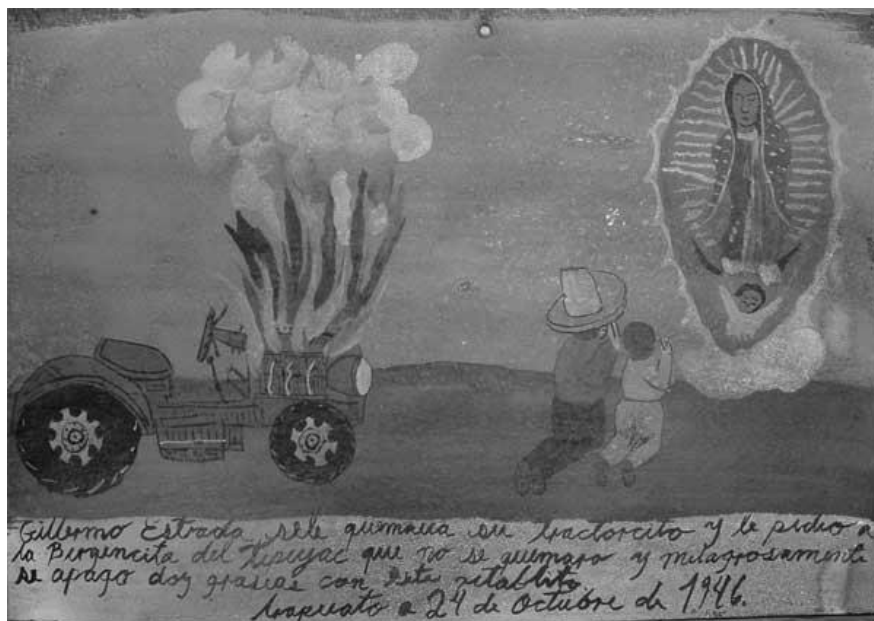 Gillermo Estrada sele quemava su tractorcito y le pidio a
la Birgencita del Tepeyac que no se quemara y milagrosamente
se apago doy grasias con este retablito.
Irapuato a 24 de Octubre de 1946.